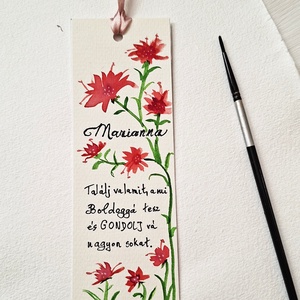 Marianna
Találj valamit, ami
Boldoggá tesz
és GONDOLJ rá
nagyon sokat.